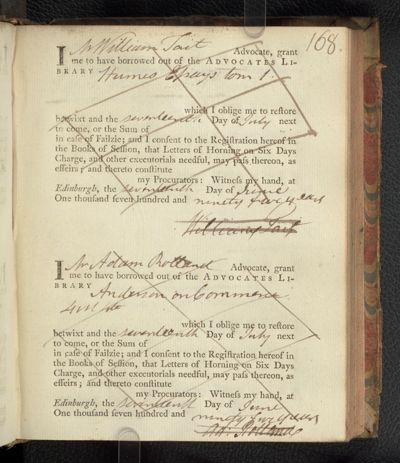 168.
I Mr William Tait Advocate, grant
me to have borrowed out of the ADVOCATES LI-
BRARY Humes Essays tom 1.
which I oblige me to restore
betwixt and the seventeenth Day of July next
to come, or the Sum of
in case of Failzie; and I consent to the Registration hereof in
the Books of Session, that Letters of Horning on Six Days
Charge, and other executorials needful, may pass thereon, as
effeirs; and thereto constitute
my Procurators: Witness my hand, at
Edinburgh, the seventeenth Day of June
One thousand seven hundred and ninety five years
William Tait
I Mr Adam Rolland Advocate, grant
me to have borrowed out of the ADVOCATES LI-
BRARY Anderson on Commerce
4
which I oblige me to restore
betwixt and the seventeenth Day of July next
to come, or the Sum of
in case of Failzie; and I consent to the Registration hereof in
the Books of Session, that Letters of Horning on Six Days
Charge, and other executorials needful, may pass thereon, as
effeirs; and thereto constitute
my Procurators: Witness my hand, at
Edinburgh, the seventeenth Day of June
One thousand seven hundred and ninety five years
Ad: Rolland